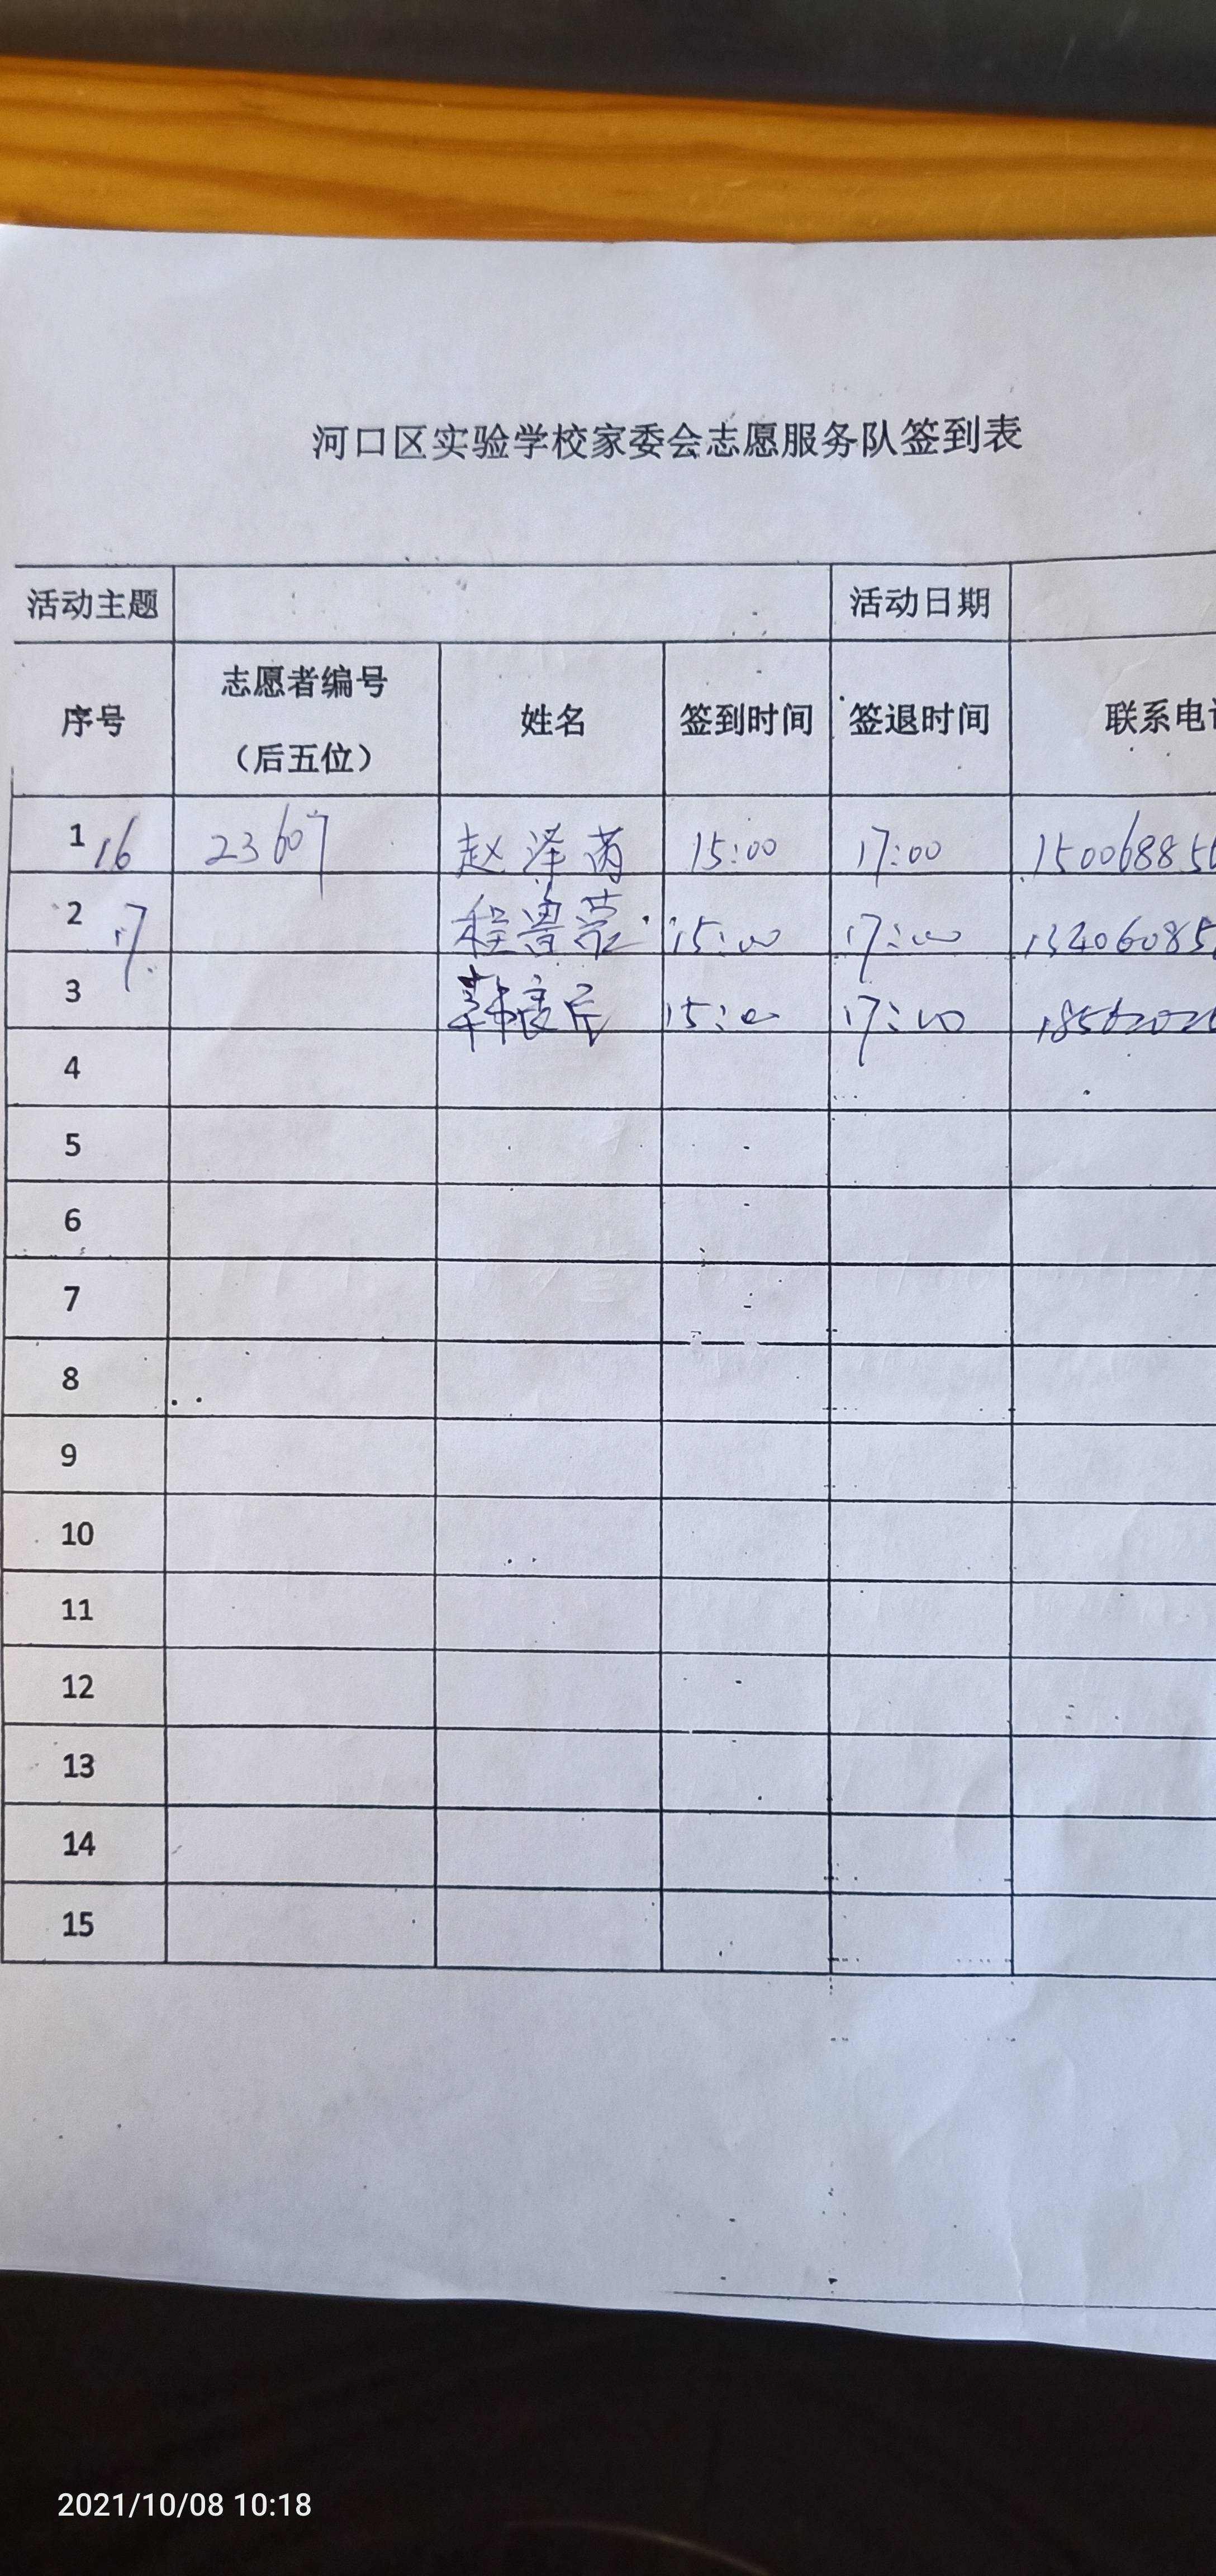 河口区实验学校家委会志愿服务队签到表
活动主题 活动日期
序号 志愿者编号 （后五位） 姓名 签到时间 签退时间 联系电
1 16 23607 赵泽芮 15:00 17:00 150068856
2 17 程鲁 15:00 17:00 134060852
3 韩 15:00 17:00
4
5
6
7
8
9
10
11
12
13
14
15
2021/10/08 10:18